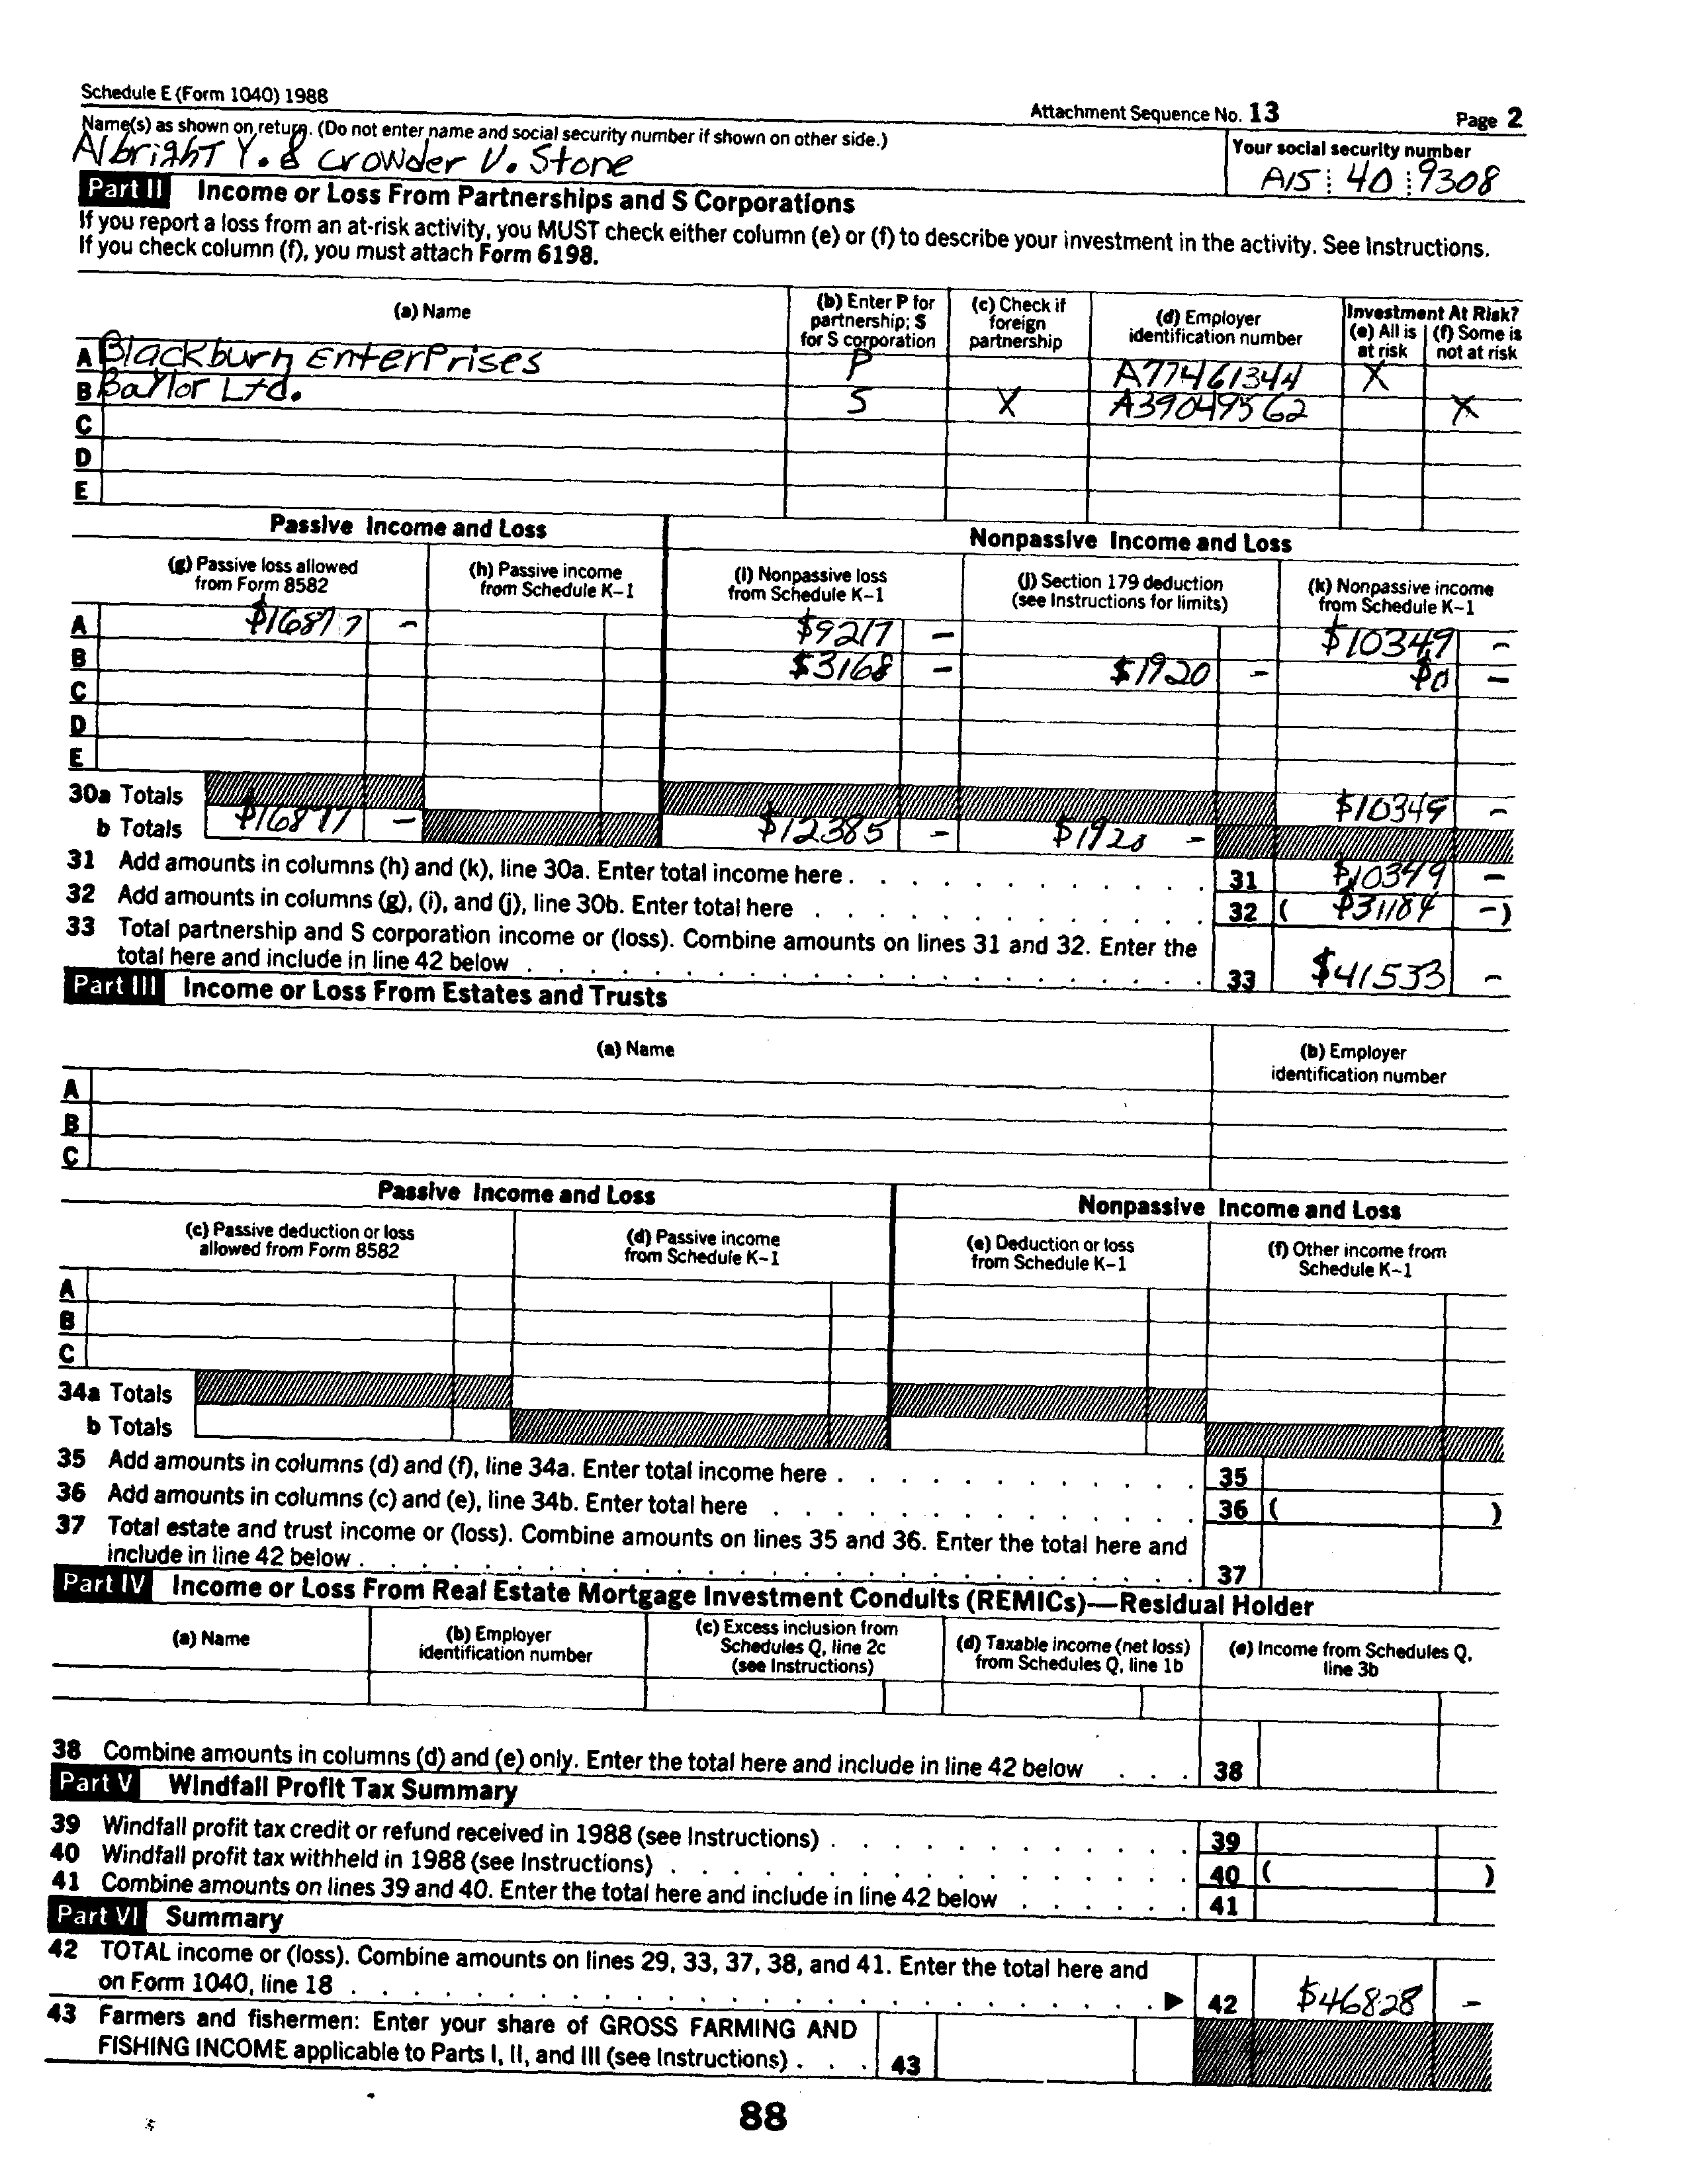 Schedule E (Form 1040) 1988
Attachment Sequence No. 13
Page 2
Name(s) as shown on return. (Do not enter name and social security number if shown on other side.)
Your social security number
Albright Y. & Crowder V. Stone
A15 40 9308
Part II Income or Loss From Partnerships and S Corporations
If you report a loss from an at-risk activity, you MUST check either column (e) or (f) to describe your investment in the activity. See Instructions.
If you check column (f), you must attach Form 6198.
(a) Name
(b) Enter P for partnership; S for S corporation
(c) Check if foreign partnership
(d) Employer identification number
Investment At Risk?
(e) All is at risk
(f) Some is not at risk
A Blackburn Enterprises P A77461344 X
B Baylor Ltd. S X A39049562 X
C
D
E
Passive Income and Loss
Nonpassive Income and Loss
(g) Passive loss allowed from Form 8582
(h) Passive income from Schedule K-1
(i) Nonpassive loss from Schedule K-1
(j) Section 179 deduction (see Instructions for limits)
(k) Nonpassive income from Schedule K-1
A $16877 - $9217 - $10349 -
B $3168 - $1920 - $0 -
C
D
E
30a Totals $10349 -
b Totals $16877 - $12385 - $1920 -
31 Add amounts in columns (h) and (k), line 30a. Enter total income here . 31 $10349 -
32 Add amounts in columns (g), (i), and (j), line 30b. Enter total here 32 ( $31184 -)
33 Total partnership and S corporation income or (loss). Combine amounts on lines 31 and 32. Enter the
total here and include in line 42 below 33 $41533 -
Part III Income or Loss From Estates and Trusts
(a) Name
(b) Employer identification number
A
B
C
Passive Income and Loss
Nonpassive Income and Loss
(c) Passive deduction or loss allowed from Form 8582
(d) Passive income from Schedule K-1
(e) Deduction or loss from Schedule K-1
(f) Other income from Schedule K-1
A
B
C
34a Totals
b Totals
35 Add amounts in columns (d) and (f), line 34a. Enter total income here . 35
36 Add amounts in columns (c) and (e), line 34b. Enter total here 36 ( )
37 Total estate and trust income or (loss). Combine amounts on lines 35 and 36. Enter the total here and
include in line 42 below . 37
Part IV Income or Loss From Real Estate Mortgage Investment Conduits (REMICs)—Residual Holder
(a) Name
(b) Employer identification number
(c) Excess inclusion from Schedules Q, line 2c (see Instructions)
(d) Taxable income (net loss) from Schedules Q, line 1b
(e) Income from Schedules Q, line 3b
38 Combine amounts in columns (d) and (e) only. Enter the total here and include in line 42 below 38
Part V Windfall Profit Tax Summary
39 Windfall profit tax credit or refund received in 1988 (see Instructions) . 39
40 Windfall profit tax withheld in 1988 (see Instructions) 40 ( )
41 Combine amounts on lines 39 and 40. Enter the total here and include in line 42 below 41
Part VI Summary
42 TOTAL income or (loss). Combine amounts on lines 29, 33, 37, 38, and 41. Enter the total here and
on Form 1040, line 18 ▶ 42 $46828 -
43 Farmers and fishermen: Enter your share of GROSS FARMING AND
FISHING INCOME applicable to Parts I, II, and III (see Instructions) . 43
88